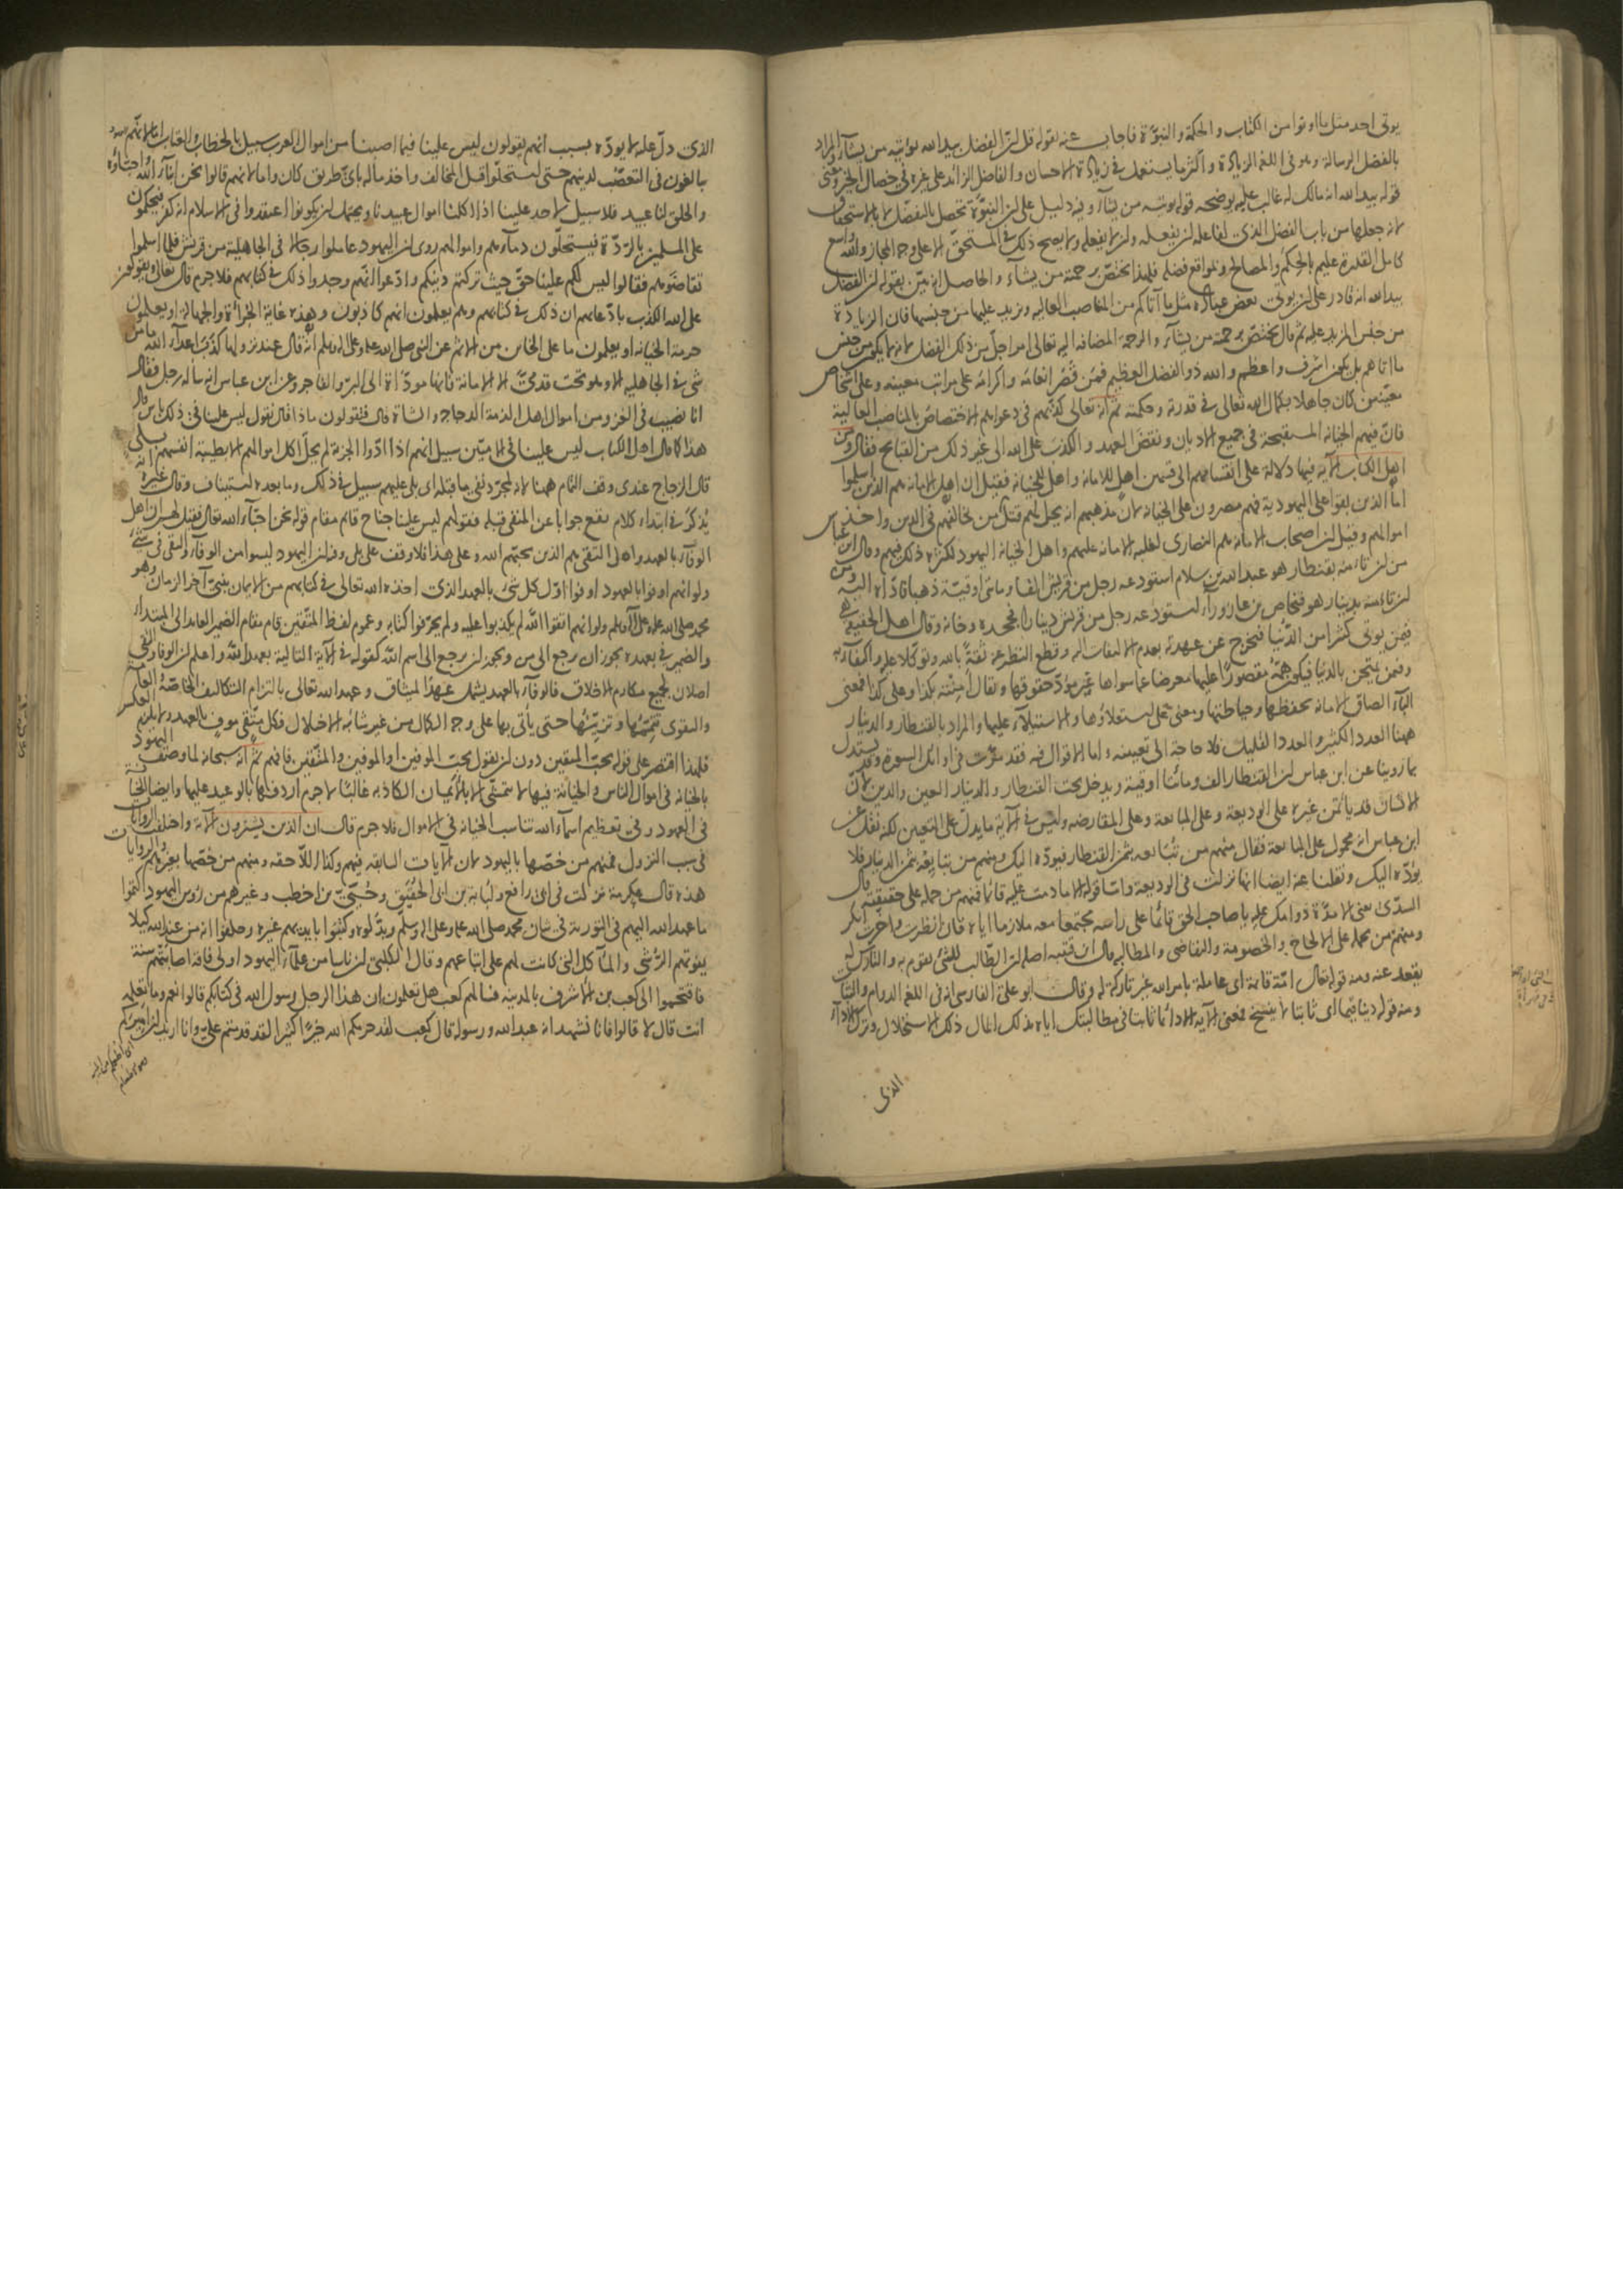 يوتى احد مثل ما اوتوا من الكتاب والحكمة والنبوّة فاجاب عنه بقوله قل ان الفضل بيد الله يوتيه من يشآء والمراد
بالفضل الرسالة وهو فى اللغة الزيادة واكثر ما يستعمل فى زيادة الاحسان والفاضل الزائد على غيره فى خصال الخير ومعنى
قوله بيد الله انه مالك له غالب عليه يوضحه قوله يوتيه من يشآء وفيه دليل على ان النبوّة تحصل بالتفضّل لا بالاستحقاق
لانه جعلها من باب الفضل الذى لفاعله ان يفعله وان لا يفعله ولا يصح ذلك فى المستحقّ الا على وجه المجاز والله واسع
كامل القدرة عليم بالحكم والمصالح وبمواقع فضله فلهذا يختصّ برحمته من يشآء والحاصل انه بيّن بقوله ان الفضل
بيد الله انه قادر على ان يوتى بعض عباده مثل ما آتاكم من المناصب العالية ويزيد عليها من جنسها فان الزيادة
من جنس المزيد عليه ثم قال يختصّ برحمته من يشآء والرحمة المضافة اليه تعالى امر اجلّ من ذلك الفضل لانه لا يكون من جنس
ما اتاهم بل يكون اشرف واعظم والله ذو الفضل العظيم فمن قصر انعامه واكرامه على مراتب معينة وعلى اشخاص
معيّنين كان جاهلا بكمال الله تعالى فى قدرته وحكمته ثم انه تعالى كذّبهم فى دعواهم الاختصاص بالمناصب العالية
فانّ فيهم الخيانة المستقبحة فى جميع الاديان ونقض العهد والكذب على الله الى غير ذلك من القبائح فقال ومن
اهل الكتاب الآية فيها دلالة على انقسامهم الى قسمين اهل للامانة واهل للخيانة فقيل ان اهل الامانة هم الذين اسلموا
امّا الذين بقوا على اليهودية فهم مصرون على الخيانة لان مذهبهم انه يحل لهم قتل من خالفهم فى الدين واخذ
اموالهم وقيل ان اصحاب الامانة هم النصارى لغلبة الامانة عليهم واهل الخيانة اليهود لكثرة ذلك فيهم وقال ابن عباس
من ان تامنه بقنطار هو عبد الله بن سلام استودعه رجل من قريش الفا ومائتى اوقيّة ذهبا فادّاه اليه ومن
ان تامنه بدينار هو فنحاص بن عازورآء استودعه رجل من قريش دينارا فجحده وخانه وقال اهل الحقيقة
فيمن يوتى كثيرا من الدّنيا فيخرج عن عهدته بعدم الالتفات اليه وقطع النظر عنه ثقة بالله وتوكلا عليه واكتفآء به
وفيمن يمتحن بالدنيا فيكون همّه مقصورًا عليها معرضا عما سواها غير مؤدّ حقوقها ويقال أمنته بكذا وعلى كذا فمعنى
البآء الصاق الامانة بحفظها وحياطتها ومعنى على استعلاؤها والاستيلآء عليها والمراد بالقنطار والدينار
ههنا العدد الكثير والعدد القليل فلا حاجة الى تعيينه واما الاقوال فيه فقد مرّت فى اوائل السورة وقد يستدل
بما روينا عن ابن عباس ان القنطار الف ومائتا اوقية ويدخل تحت القنطار والدينار العين والدين لانّ
الانسان قد ياتمن غيره على الوديعة وعلى المبايعة وعلى المقارضة وليس فى الآية ما يدل على التعيين لكنه نقل عن
ابن عباس انه محمول على المبايعة فقال منهم من تبايعه بثمن القنطار فيودّه اليك ومنهم من تبايعه بثمن الدينار فلا
يؤدّه اليك ونقلنا عنه ايضا انها نزلت فى الوديعة وامّا قوله الا ما دمت عليه قائما فمنهم من حمله على حقيقته قال
السدّى يعنى الا مدّة دوامك عليه يا صاحب الحق قائما على راسه مجتمعا معه ملازما اياه فان انظرت واخّرت انكر
ومنهم من يحمله على الالحاح والخصومة والتقاضى والمطالبة قال ابن قتيبة اصله ان الطّالب للشى يقوم به والتارك له
يقعد عنه ومنه قوله تعالى امّة قائمة اى عاملة بامر الله غير تاركة له وقال ابو علىّ الفارسى انه فى اللغة الدوام والثبات
ومنه قوله دينا قيما اى ثابتا لا ينسخ فمعنى الآية الا دائما ثابتا فى مطالبتك اياه بذلك المال ذلك الاستحلال وترك الادآء
الذى
الذى دلّ عليه لا يودّه بسبب انهم يقولون ليس علينا فيما اصبنا من اموال العرب سبيل بالخطاب والعتاب امّا لانّهم
يبالغون فى التعصّب لدينهم حتى استحلّوا قتل المخالف واخذ ماله باىّ طريق كان واما لانهم قالوا نحن ابنآء الله واحبّاؤه
والخلق لنا عبيد فلا سبيل لاحد علينا اذا اكلنا اموال عبيدنا ويحتمل ان يكونوا اعتقدوا فى الاسلام انه كفر فيحكمون
على المسلمين بالردّة فيستحلّون دمآءهم واموالهم روى ان اليهود عاملوا رجالا فى الجاهلية من قريش فلما اسلموا
تقاضوهم فقالوا ليس لكم علينا حقّ حيث تركتم دينكم وادّعوا انّهم وجدوا ذلك فى كتابهم فلا جرم قال تعالى ويقولون
على الله الكذب بادّعائهم ان ذلك فى كتابهم وهم يعلمون انهم كاذبون وهذه غاية الجرأة والجهالة او يعلمون
حرمة الخيانة او يعلمون ما على الخائن من الاثم عن النبى صلى الله عليه وعلى اله وسلم انّه قال عند نزولها كذب اعدآء الله ما من
شى فى الجاهلية الا وهو تحت قدمىّ الا الامانة فانها مودّاة الى البرّ والفاجر وعن ابن عباس انه ساله رجل فقال
انا نصيب فى الغزو من اموال اهل الذمة الدجاجة والشاة قال فتقولون ماذا قال نقول ليس علينا فى ذلك باس قال
هذا كما قال اهل الكتاب ليس علينا فى الامّيّين سبيل انهم اذا ادّوا الجزية لم يحلّ اكل اموالهم الا بطيبة انفسهم بلى
قال الزجاج عندى وقف التمام ههنا لانه لمجرّد نفى ما قبله اى بلى عليهم سبيل فى ذلك وما بعده استيناف وقال غيره انه
يُذكر فى ابتداء كلام يقع جوابا عن المنفى قبله فقولهم ليس علينا جناح قائم مقام قوله نحن احبّآء الله تعالى فقيل لهم ان اهل
الوفآء بالعهد واهل التقى هم الذين يحبّهم الله وعلى هذا فلا وقف على بلى وفيه ان اليهود ليسوا من الوفآء والتقى فى شىء
ولو انهم اوفوا بالعهود اوفوا اوّل كل شىء بالعهد الذى اخذه الله تعالى فى كتابهم من الايمان بنبىّ آخر الزمان وهو
محمد صلى الله عليه وعلى آله وسلم ولو انهم اتقوا الله لم يكذبوا عليه ولم يحرّفوا كتابه وعموم لفظ المتّقين قام مقام الضمير العائد الى المبتداء
والضمير فى بعهده يجوز ان يرجع الى من ويجوز ان يرجع الى اسم الله كقوله فى الآية التالية بعهد الله واعلم ان الوفا والتقى
اصلان لجميع مكارم الاخلاق فالوفآء بالعهد يشمل عهد الميثاق وعهد الله تعالى بالتزام التكاليف الخاصّة والعامّة
والتقوى تتممها وتزيّنها حتى يأتى بها على وجه الكمال من غير شائبة الاخلال فكل متّقى موفٍ بالعهد ولا ينعكس
فلهذا اقتصر على قوله يحبّ المتقين دون ان يقول يحب الموفين او الموفين والمتّقين فافهم ثمّ انه سبحانه لما وصف اليهود
بالخيانة فى اموال الناس والخيانة فيها لا تتمشّى الا بالأيمان الكاذبة غالبًا لا جرم اردفها بالوعيد عليها وايضا الخيانة
فى العهود وفى تعظيم اسمآء الله تناسب الخيانة فى الاموال فلا جرم قال ان الذين يشترون الآية واختلف الروايات
فى سبب النزول فمنهم من خصّها باليهود لان الآيات السابقة فيهم وكذا اللاّحقة ومنهم من خصّها بغيرهم والروايات
هذه قال عكرمة نزلت فى ابى رافع ولبابة بن ابى الحقيق وحُيىّ بن اخطب وغيرهم من رؤس اليهود كتموا
ما عهد الله اليهم فى التورية فى شان محمد صلى الله عليه وعلى اله وسلم وبدّلوه وكتبوا بايديهم غيره وحلفوا انه من عند الله كيلا
يفوتهم الرّشى والمآكل التى كانت لهم على اتباعهم وقال الكلبىّ ان ناسا من علمآء اليهود اولى فاقة اصابتهم سنة
فاقتحموا الى كعب بن الاشرف بالمدينة فسالهم كعب هل تعلمون ان هذا الرجل رسول الله فى كتابكم قالوا نعم وما تعلمه
انت قال لا قالوا فانا نشهد انه عبد الله ورسوله قال كعب لقد حرمكم الله خيرًا كثيرا لقد قدمتم علىّ وانا اريد ان اميركم